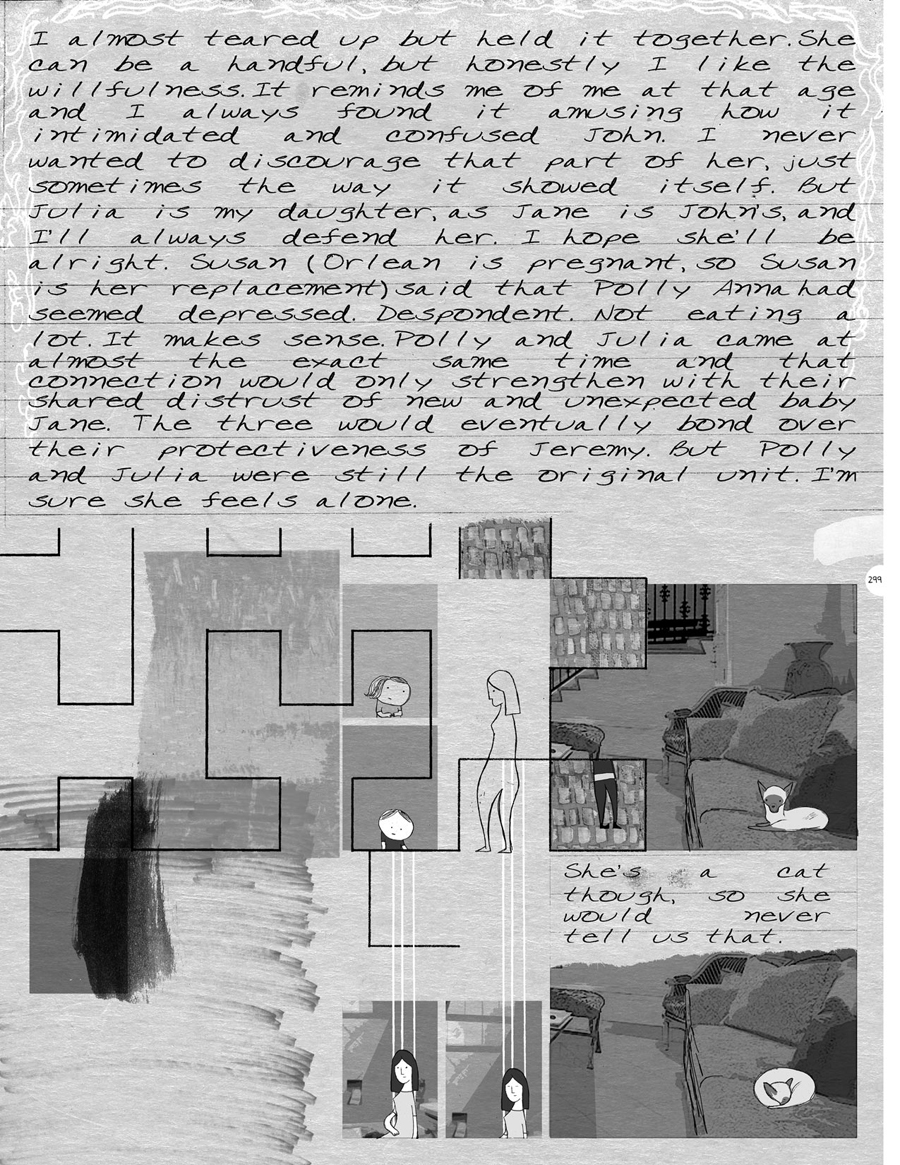 I almost teared up but held it together. She
can be a handful, but honestly I like the
willfulness. It reminds me of me at that age
and I always found it amusing how it
intimidated and confused John. I never
wanted to discourage that part of her, just
sometimes the way it showed itself. But
Julia is my daughter, as Jane is John's, and
I'll always defend her. I hope she'll be
alright. Susan (Orlean is pregnant, so Susan
is her replacement) said that Polly Anna had
seemed depressed. Despondent. Not eating a
lot. It makes sense. Polly and Julia came at
almost the exact same time and that
connection would only strengthen with their
shared distrust of new and unexpected baby
Jane. The three would eventually bond over
their protectiveness of Jeremy. But Polly
and Julia were still the original unit. I'm
sure she feels alone.
299
She's a cat
though, so she
would never
tell us that.